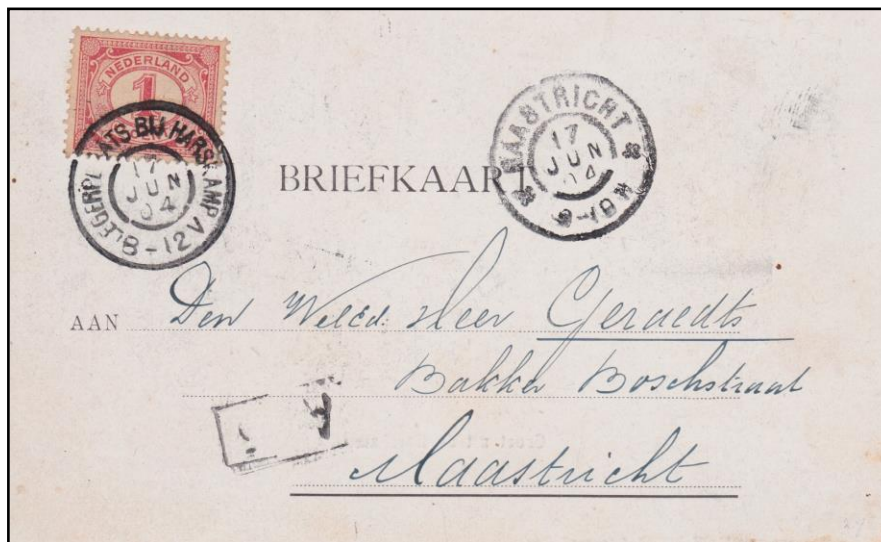 NEDERLAND
1
LEGERPLAATS BIJ HARSKAMP
17
JUN
04
8-12V
MAASTRICHT
17
JUN
04
BRIEFKAART
AAN Den WelEd: Heer Geraedts
Bakker Boschstraat
Maastricht